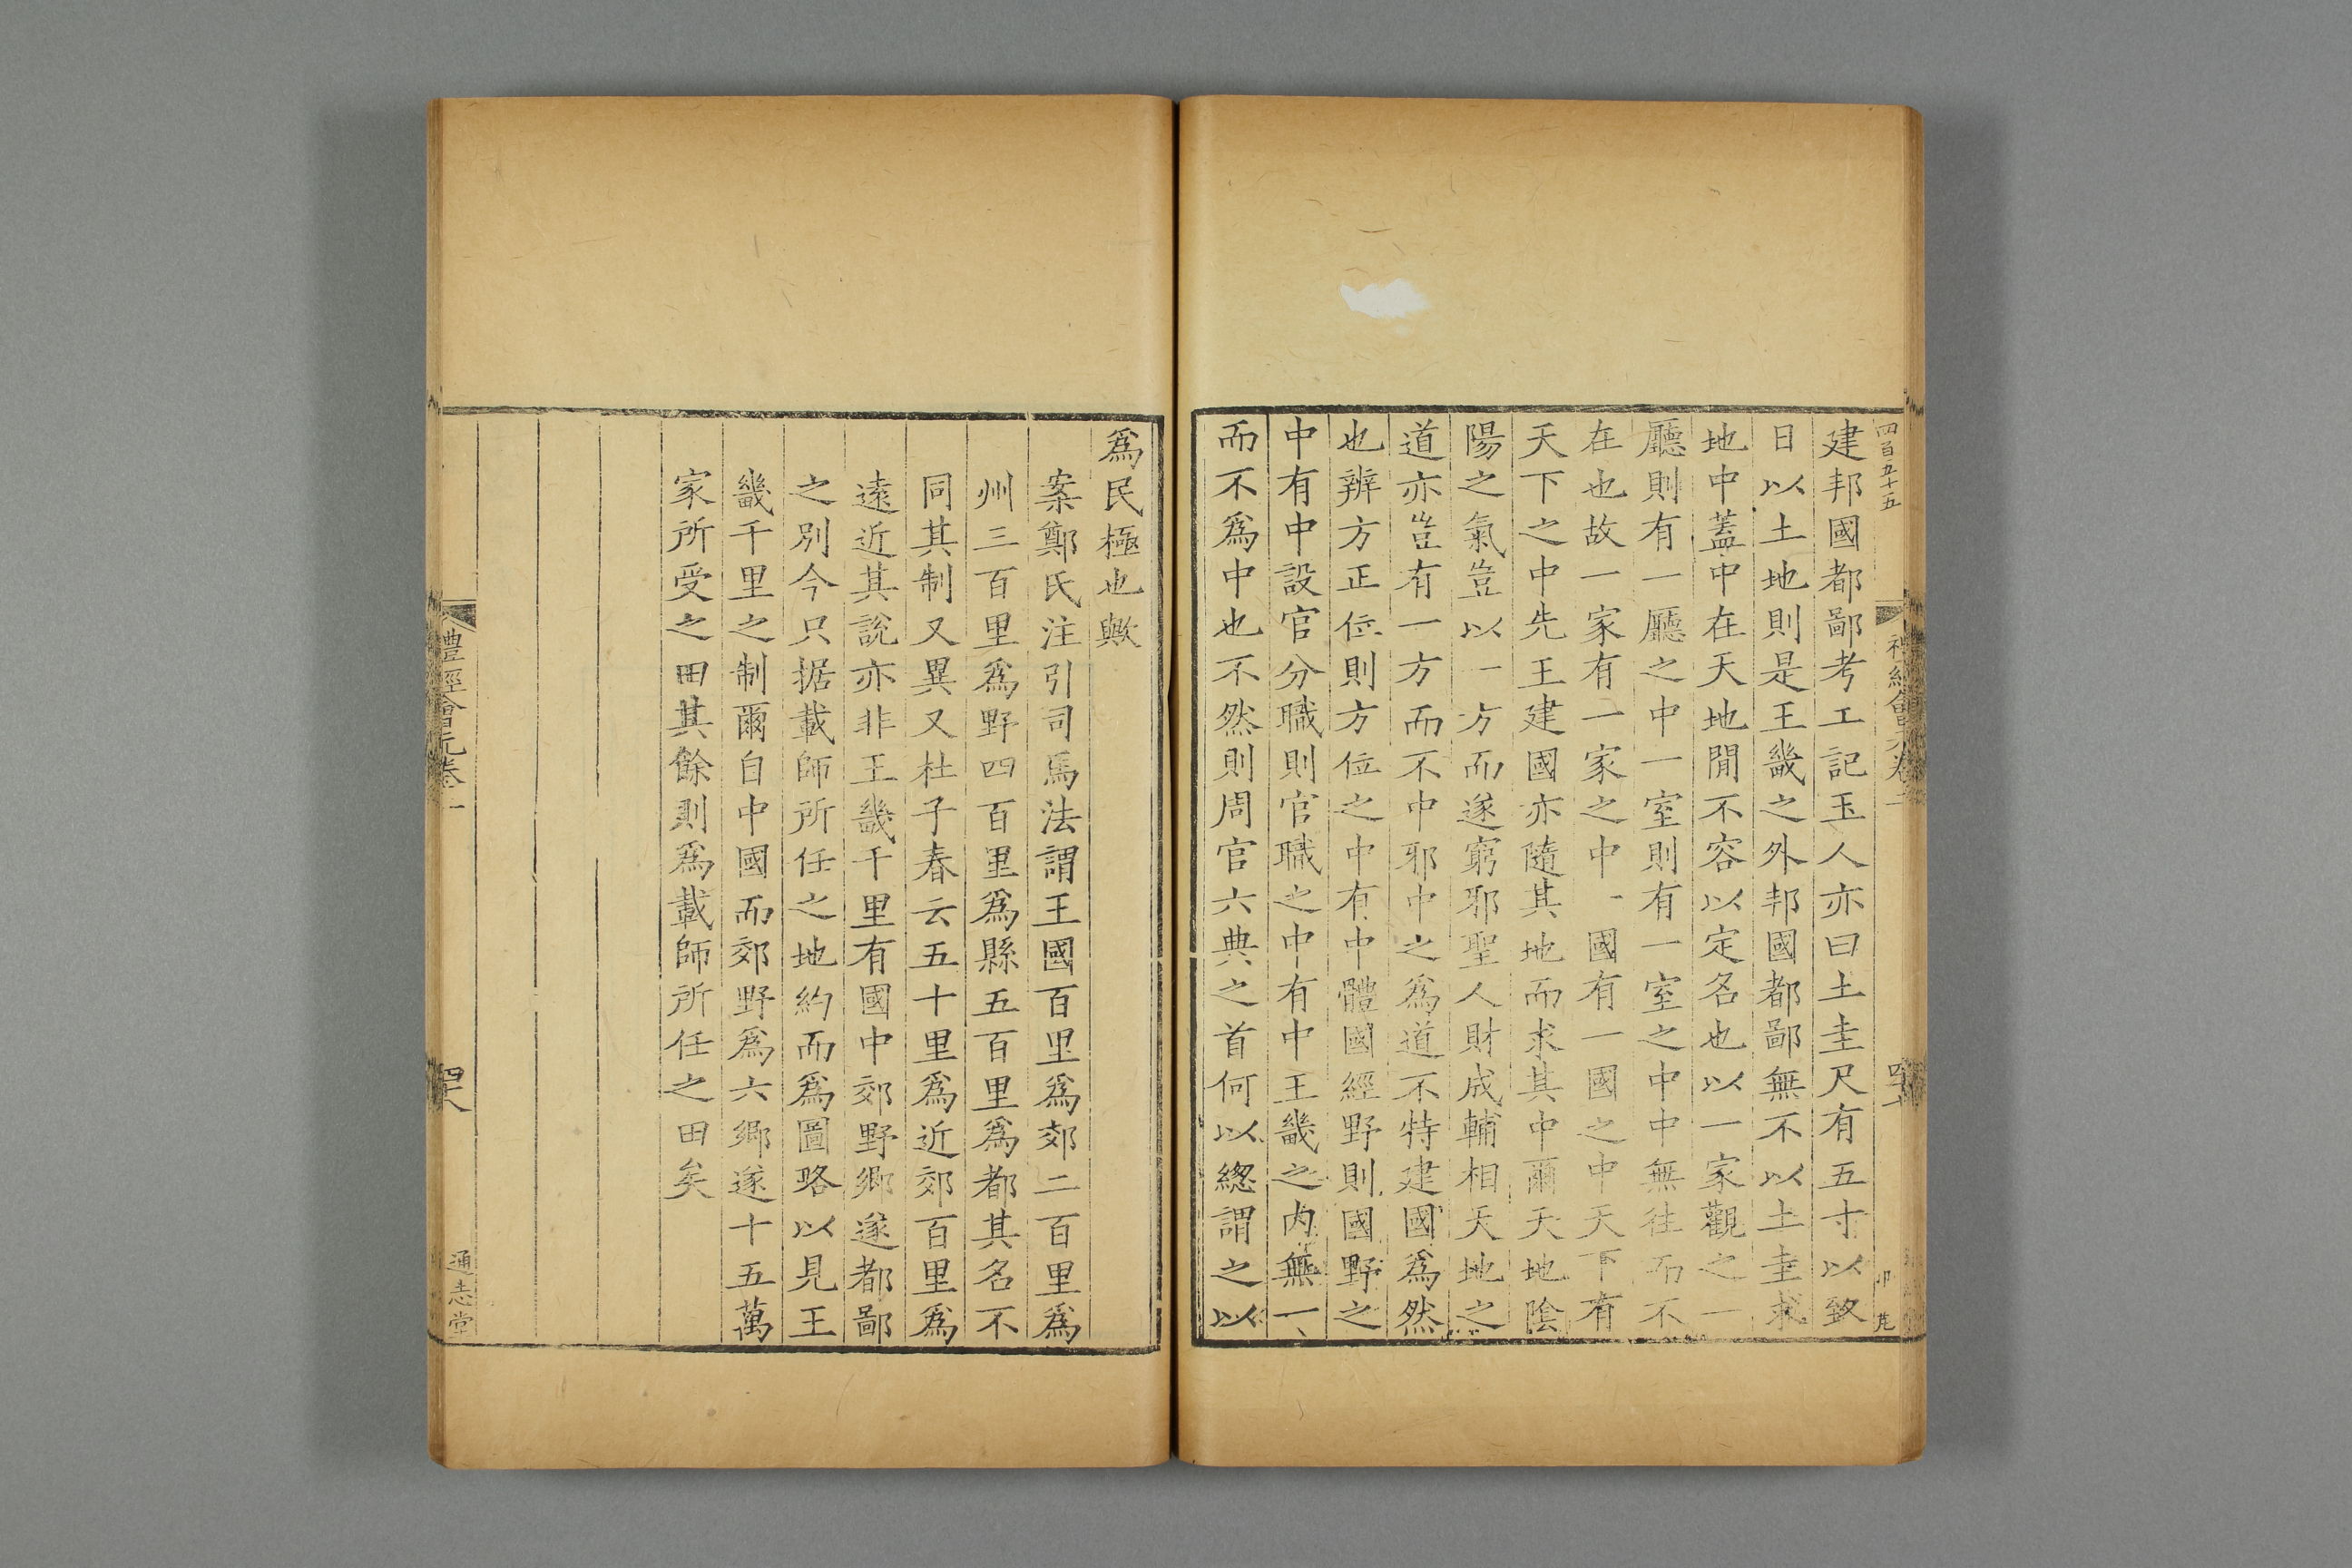 四百五十五
建邦國都鄙考工記玉人亦曰土圭尺有五寸以致
日以土地則是王畿之外邦國都鄙無不以土圭求
地中蓋中在天地閒不容以定名也以一家觀之一
廳則有一廳之中一室則有一室之中中無往而不
在也故一家有一家之中一國有一國之中天下有
天下之中先王建國亦隨其地而求其中爾天地陰
陽之氣豈以一方而遂窮邪聖人財成輔相天地之
道亦豈有一方而不中邪中之為道不特建國為然
也辨方正位則方位之中有中體國經野則國野之
中有中設官分職則官職之中有中王畿之內無一
而不為中也不然則周官六典之首何以總謂之以
為民極也歟
案鄭氏注引司馬法謂王國百里為郊二百里為
州三百里為野四百里為縣五百里為都其名不
同其制又異又杜子春云五十里為近郊百里為
遠近其說亦非王畿千里有國中郊野鄉遂都鄙
之別今只据載師所任之地約而為圖略以見王
畿千里之制爾自中國而郊野為六鄉遂十五萬
家所受之田其餘則為載師所任之田矣
禮經會元卷一
四十八
通志堂